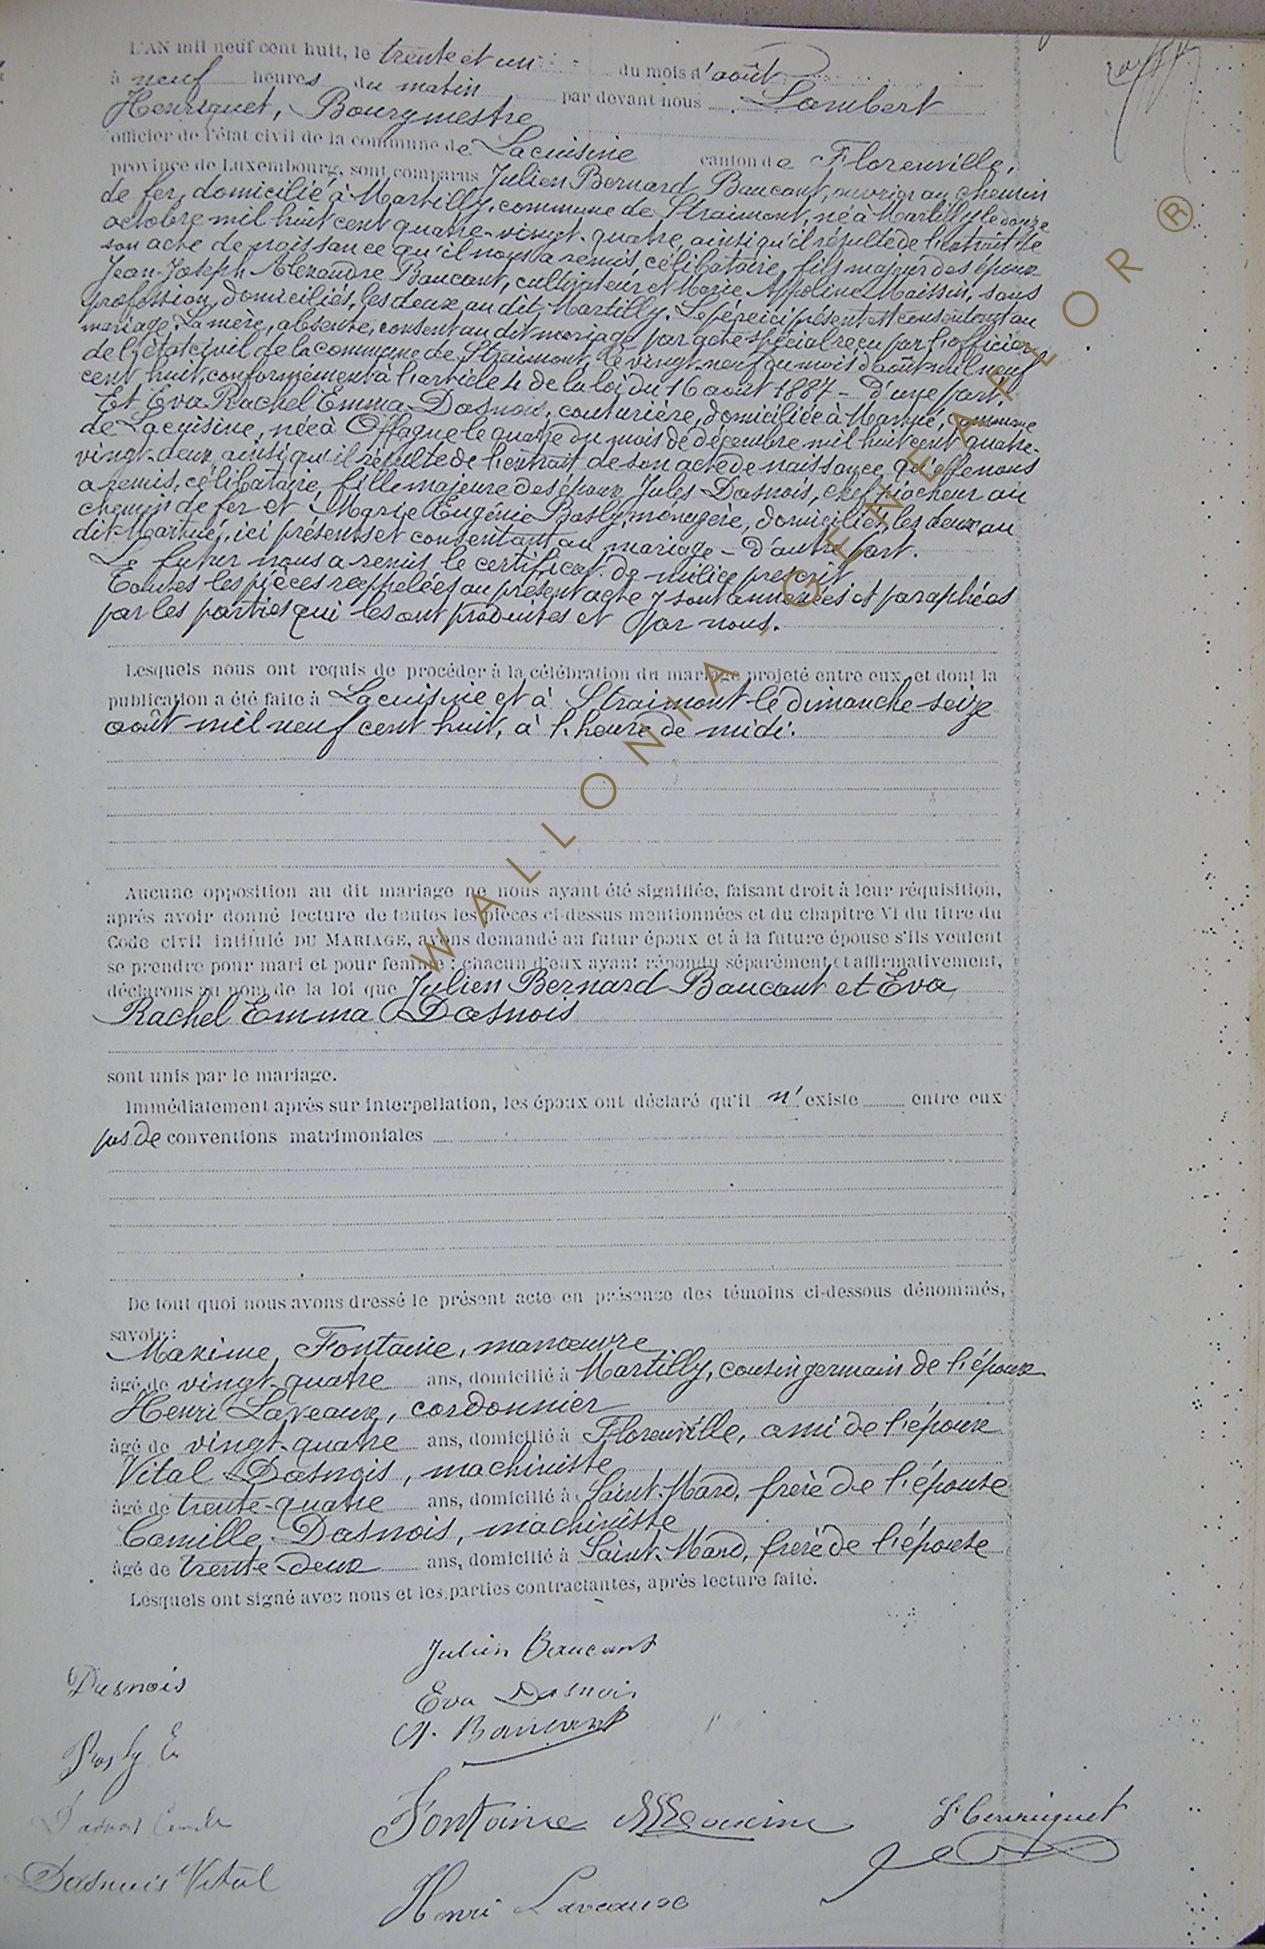 L'AN mil neuf cent huit, le trente et un du mois d'août
à neuf heures du matin par devant nous Lambert
Henriquet, Bourgmestre
officier de l'état civil de la commune de Lacuisine canton de Florenville,
province de Luxembourg, sont comparus Julien Bernard Baucant, ouvrier au chemin
de fer, domicilié à Martilly, commune de Straimont, né à Martilly le douze
octobre mil huit cent quatre-vingt-quatre, ainsi qu'il résulte de l'extrait de
son acte de naissance qu'il nous a remis, célibataire, fils majeur des époux
Jean-Joseph Alexandre Baucant, cultivateur et Marie Appoline Maissin, sans
profession, domiciliés, les deux au dit Martilly. Le père ici présent et consentant au
mariage. La mère, absente, consent au dit mariage par acte spécial reçu par l'officier
de l'état civil de la commune de Straimont, le vingt-neuf du mois d'août mil neuf
cent huit, conformément à l'article 4 de la loi du 16 août 1887 - d'une part.
Et Eva Rachel Emma Dasnois, couturière, domiciliée à Martué, commune
de Lacuisine, née à Offagne le quatre du mois de décembre mil huit cent quatre-
vingt-deux, ainsi qu'il résulte de l'extrait de son acte de naissance qu'elle nous
a remis, célibataire, fille majeure des époux Jules Dasnois, chef piocheur au
chemin de fer et Marie Eugénie Basly, ménagère, domiciliés, les deux au
dit Martué, ici présents et consentant au mariage - d'autre part.
Le futur nous a remis le certificat de milice prescrit.
Toutes les pièces rappelées au présent acte y sont annexées et paraphées
par les parties qui les ont produites et par nous.
Lesquels nous ont requis de procéder à la célébration du mariage projeté entre eux, et dont la
publication a été faite à Lacuisine et à Straimont le dimanche seize
août mil neuf cent huit, à l'heure de midi.
Aucune opposition au dit mariage ne nous ayant été signifiée, faisant droit à leur réquisition,
après avoir donné lecture de toutes les pièces ci-dessus mentionnées et du chapitre VI du titre du
Code civil intitulé DU MARIAGE, avons demandé au futur époux et à la future épouse s'ils veulent
se prendre pour mari et pour femme : chacun d'eux ayant répondu séparément et affirmativement,
déclarons au nom de la loi que Julien Bernard Baucant et Eva
Rachel Emma Dasnois
sont unis par le mariage.
Immédiatement après sur interpellation, les époux ont déclaré qu'il n'existe entre eux
pas de conventions matrimoniales
De tout quoi nous avons dressé le présent acte en présence des témoins ci-dessous dénommés,
savoir :
Maxime Fontaine, manœuvre
âgé de vingt-quatre ans, domicilié à Martilly, cousin germain de l'époux
Henri Laveaux, cordonnier
âgé de vingt-quatre ans, domicilié à Florenville, ami de l'époux
Vital Dasnois, machiniste
âgé de trente-quatre ans, domicilié à Saint-Mard, frère de l'épouse
Camille Dasnois, machiniste
âgé de trente-deux ans, domicilié à Saint-Mard, frère de l'épouse
Lesquels ont signé avec nous et les parties contractantes, après lecture faite.
Julien Baucant
Dasnois
Eva Dasnois
A. Baucant
Basly E
Dasnois Camille
Fontaine Maxime
L Henriquet
Dasnois Vital
Henri Laveaux
WALLONIA GENEAFLOR ®